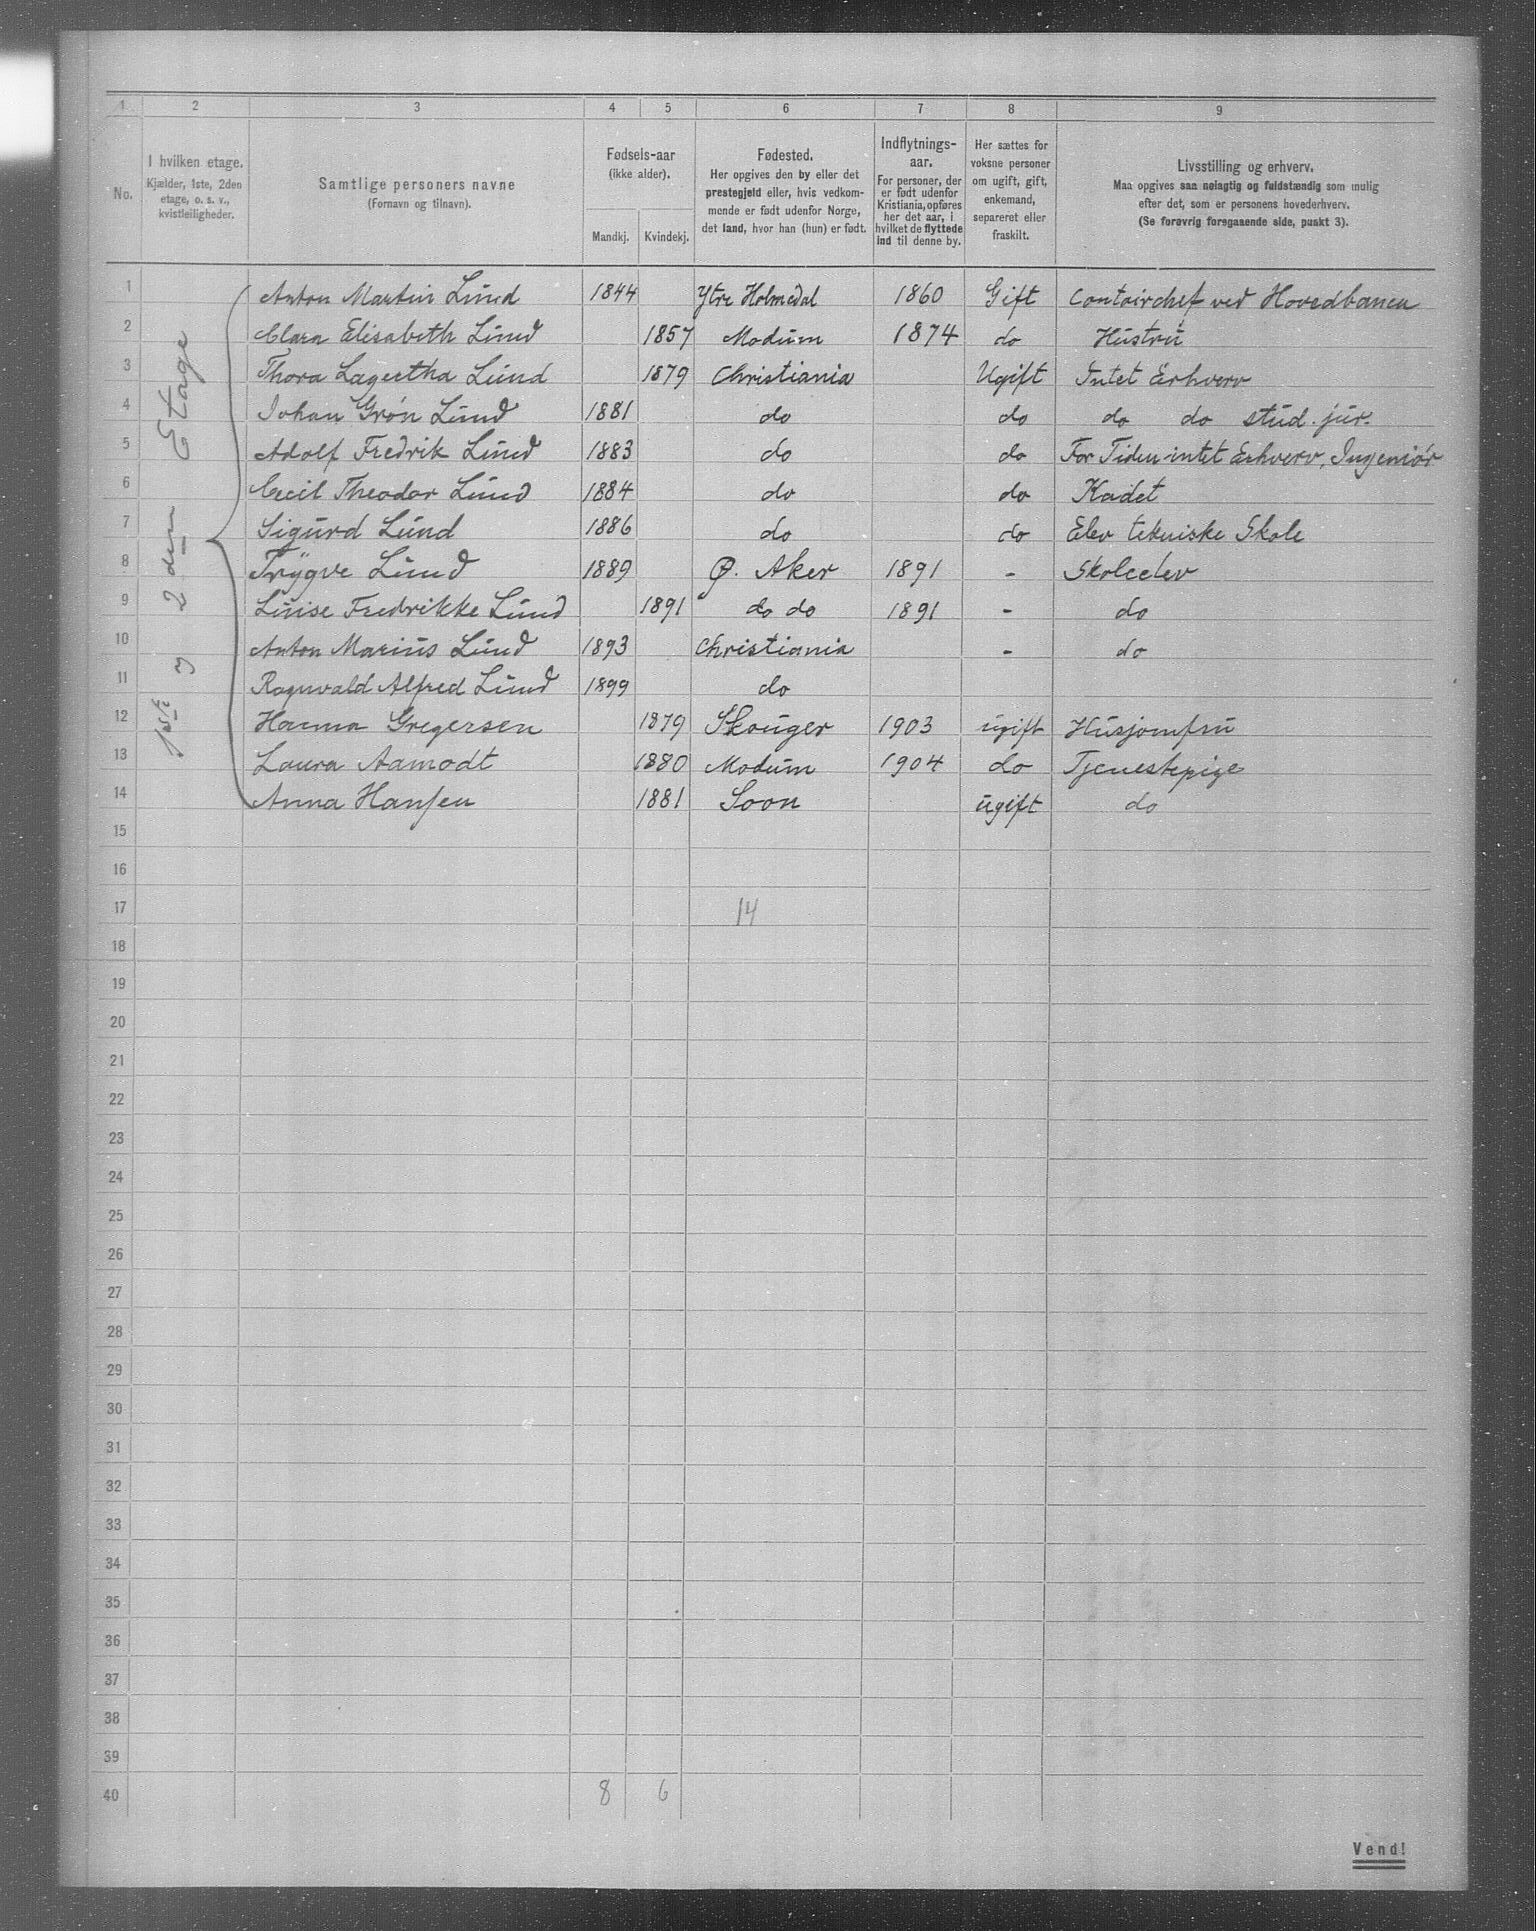 1 2 3 4 5 6 7 8 9
No. I hvilken etage. Kjælder, 1ste, 2den etage, o. s. v., kvistleiligheder. Samtlige personers navne (Fornavn og tilnavn). Fødsels-aar (ikke alder). Mandkj. Kvindekj. Fødested. Her opgives den by eller det prestegjeld eller, hvis vedkommende er født udenfor Norge, det land, hvor han (hun) er født. Indflytnings-aar. For personer, der er født udenfor Kristiania, opføres her det aar, i hvilket de flyttede ind til denne by. Her sættes for voksne personer om ugift, gift, enkemand, separeret eller fraskilt. Livsstilling og erhverv. Maa opgives saa nøiagtig og fuldstændig som mulig efter det, som er personens hovederhverv. (Se forøvrig foregaaende side, punkt 3).
1ste og 2den Etage
1 Anton Martin Lund 1844 Ytre Holmedal 1860 Gift Contoirchef ved Hovedbanen
2 Clara Elisabeth Lund 1857 Modum 1874 do Hustru
3 Thora Lagertha Lund 1879 Christiania Ugift Intet Erhverv
4 Johan Grøn Lund 1881 do do do do stud. jur.
5 Adolf Fredrik Lund 1883 do do For Tiden intet Erhverv, Ingeniør
6 Cecil Theodor Lund 1884 do do Kadet
7 Sigurd Lund 1886 do do Elev tekniske Skole
8 Trygve Lund 1889 Ø. Aker 1891 - Skoleelev
9 Luise Fredrikke Lund 1891 do do 1891 - do
10 Anton Marius Lund 1893 Christiania - do
11 Ragnvald Alfred Lund 1899 do
12 Hanna Gregersen 1879 Skouger 1903 ugift Husjomfru
13 Laura Aamodt 1880 Modum 1904 do Tjenestepige
14 Anna Hansen 1881 Soon ugift do
15
16
17 14
18
19
20
21
22
23
24
25
26
27
28
29
30
31
32
33
34
35
36
37
38
39
40 8 6
Vend!